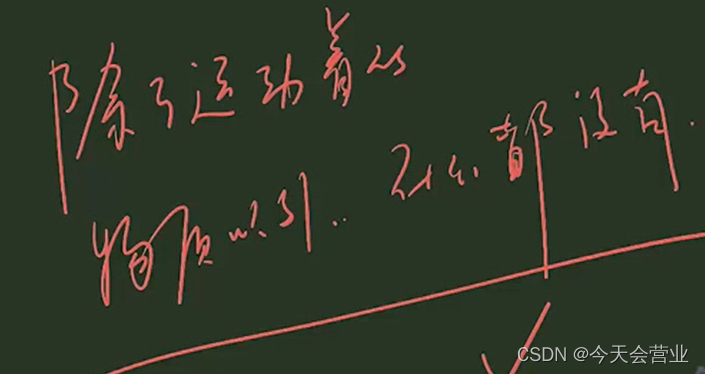 除了运动着的
物质以外.. 什么都没有.
CSDN @今天会营业